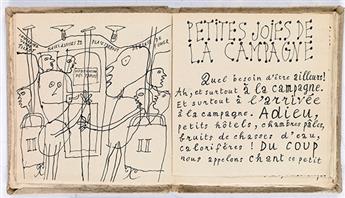 PETITES JOIES DE
LA CAMPAGNE
Quel besoin d'être ailleurs!
Ah, et surtout à la campagne.
Et surtout à l'arrivée
à la campagne. Adieu,
petits hôtels, chambres pâles,
bruits de chasses d'eau,
calorifères! DU COUP
nous appelons chant ce petit
II II